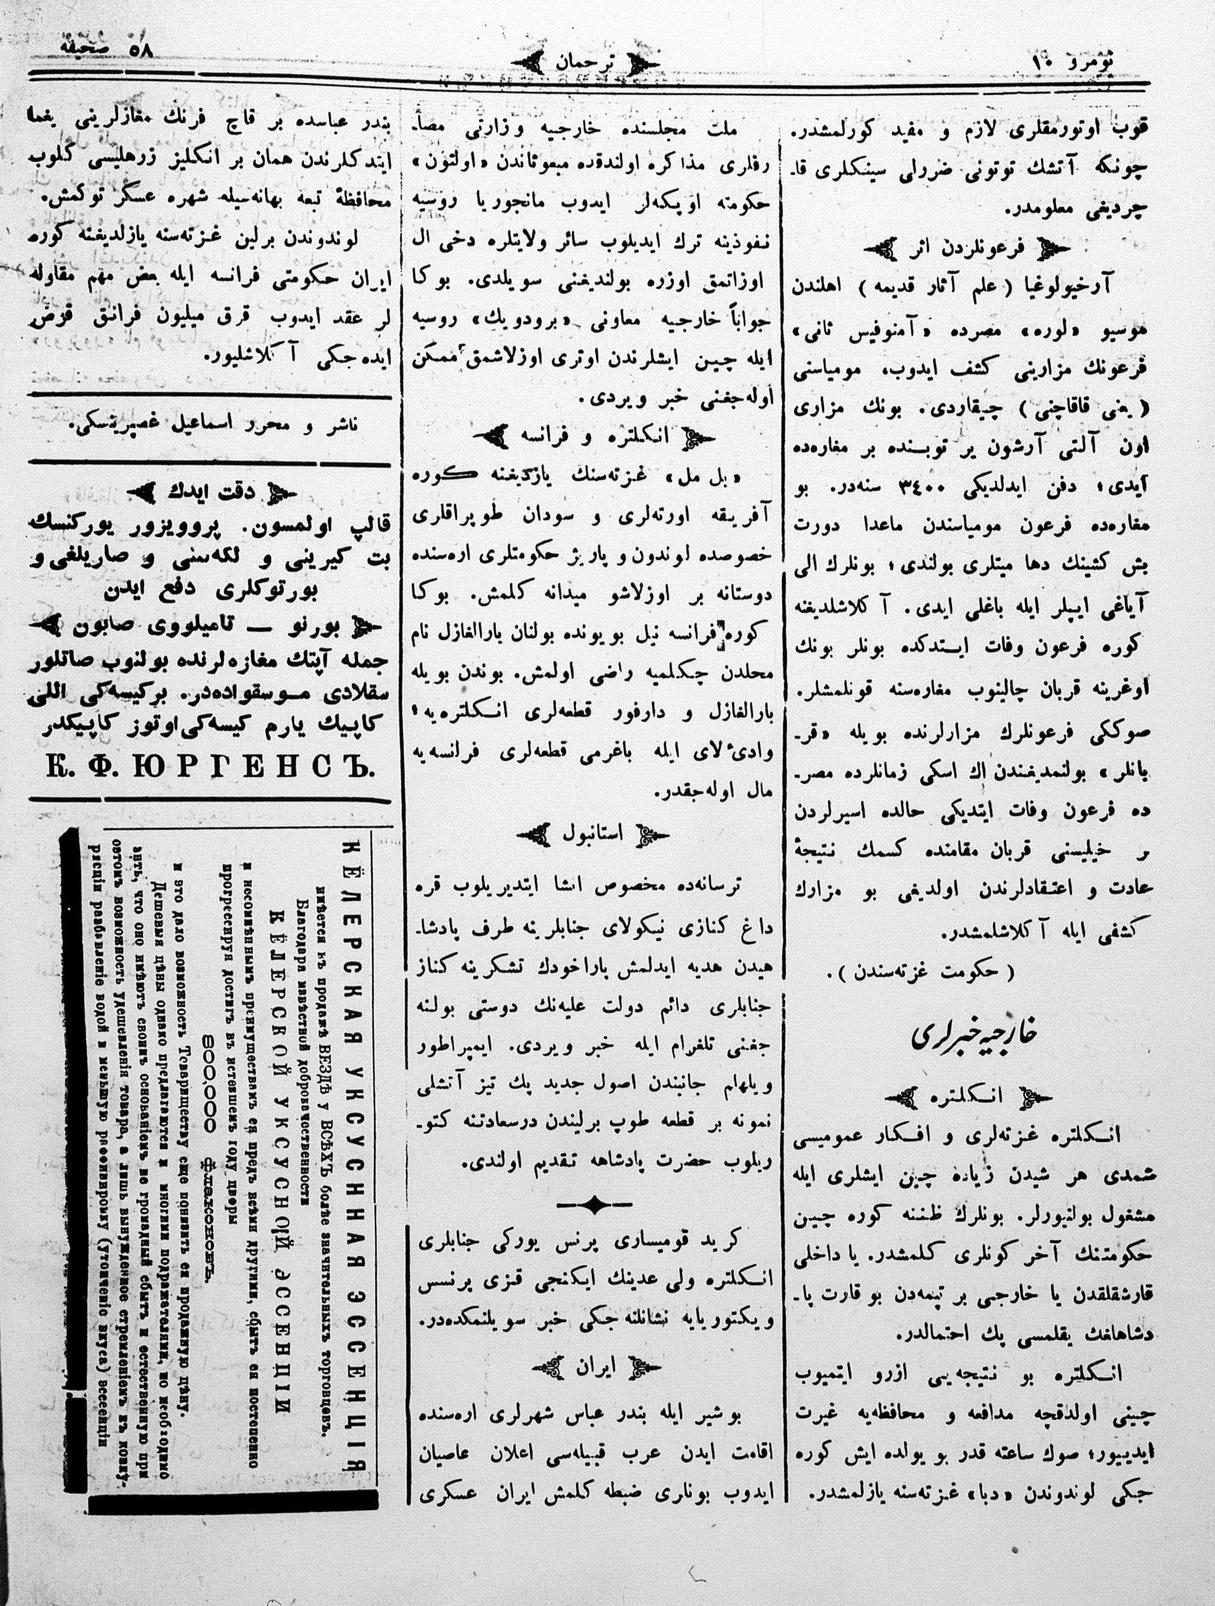 نومرو ١٠
ترجمان
٥٨ صحیفه
قوب اوتورمقلری لازم و مفید كورلمشدر.
چونكه آتشك توتونی ضررلی سینكلری قا-
چردیغی معلومدر.
فرعونلردن اثر
آرخیولوغیا (علم آثار قدیمه) اهلندن
موسیو «لوره» مصرده «آمنوفیس ثانی»
فرعونك مزارینی كشف ایدوب، مومیاسنی
(یعنی قاقاچنی) چیقاردی. بونك مزاری
اون آلتی آرشون یر توبنده بر مغاره‌ده
آیدی؛ دفن ایدلدیكی ٣٤٠٠ سنه‌در. بو
مغاره‌ده فرعون مومیاسندن ماعدا دورت
بش كشینك دها میتلری بولندی؛ بونلرك الی
آیاغی ایپلر ایله باغلی ایدی. آكلاشلدیغنه
كوره فرعون وفات ایتدكده بونلر بونك
اوغرینه قربان چالینوب مغاره‌سنه قونلمشلر.
صوككی فرعونلرك مزارلرنده بویله «قر-
بانلر» بولنمدیغندن اك اسكی زمانلرده مصر-
ده فرعون وفات ایتدیكی حالده اسیرلردن
بر خیلیسنی قربان مقامنده كسمك نتیجهٔ
عادت و اعتقادلرندن اولدیغی بو مزارك
كشفی ایله آكلاشلمشدر.
(حكومت غزته‌سندن).
خارجیه خبرلری
انكلتره
انكلتره غزته‌لری و افكار عمومیسی
شمدی هر شیدن زیاده چین ایشلری ایله
مشغول بولنیورلر. بونلرك ظننه كوره چین
حكومتنك آخر كونلری كلمشدر. یا داخلی
قارشقلقدن یا خارجی بر تپمه‌دن بو قارت پا-
دشاهلغك یقلمسی پك احتمالدر.
انكلتره بو نتیجه‌یی ازرو ایتمیوب
چینی اولدقچه مدافعه و محافظه‌یه غیرت
ایدییور؛ صوك ساعته قدر بو یولده ایش كوره
جكی لوندوندن «دبا» غزته‌سنه یازلمشدر.
ملت مجلسنده خارجیه وزارتی مصا-
رفلری مذاكره اولندقده مبعوثاندن «اولتون»
حكومته اویكه‌لر ایدوب مانجوریا روسیه
نفوذینه ترك ایدیلوب سائر ولایتلره دخی ال
اوزاتمق اوزره بولندیغنی سویلدی. بوكا
جواباً خارجیه معاونی «برودویك» روسیه
ایله چین ایشلرندن اوتری اوزلاشمق ممكن
اوله‌جغنی خبر ویردی.
انكلتره و فرانسه
«بل مل» غزته‌سنك یازدیغنه كوره
آفریقه اورته‌لری و سودان طوپراقلری
خصوصده لوندون و پاریژ حكومتلری اره‌سنده
دوستانه بر اوزلاشو میدانه كلمش. بوكا
كوره فرانسه نیل بویونده بولنان بارالغازل نام
محلدن چكلمیه راضی اولمش. بوندن بویله
بارالغازل و دارفور قطعه‌لری انكلتره‌یه؛
وادئ لای ایله باغرمی قطعه‌لری فرانسه‌یه
مال اوله‌جقدر.
استانبول
ترسانه‌ده مخصوص انشا ایتدیریلوب قره
داغ كنازی نیكولای جنابلرینه طرف پادشا-
هیدن هدیه ایدلمش پاراخودك تشكرینه كناز
جنابلری دائم دولت علیه‌نك دوستی بولنه
جغنی تلغرام ایله خبر ویردی. ایمپراطور
ویلهام جانبندن اصول جدید پك تیز آتشلی
نمونه بر قطعه طوپ برلیندن درسعادتنه كتو-
ریلوب حضرت پادشاهه تقدیم اولندی.
كرید قومیساری پرنس یوركی جنابلری
انكلتره ولی عدینك ایكنجی قزی پرنسس
ویكتوریایه نشانلنه‌جكی خبر سویلنمكده‌در.
ایران
بوشیر ایله بندر عباس شهرلری اره‌سنده
اقامت ایدن عرب قبیله‌سی اعلان عاصیان
ایدوب بوناری ضبطه كلمش ایران عسكری
بندر عباسده بر قاچ فرنك مغازلرینی یغما
ایتدكلرندن همان بر انكلیز زرهلیسی كلوب
محافظهٔ تبعه بهانه‌سیله شهره عسكر توكمش.
لوندوندن برلین غزته‌سنه یازلدیغنه كوره
ایران حكومتی فرانسه ایله بعض مهم مقاوله
لر عقد ایدوب قرق میلیون فرانق قرض
ایده‌جكی آكلاشلیور.
ناشر و محرر اسماعیل غصپرینسكی.
دقت ایدك
قالپ اولمسون. پروویزور یورگنسك
بت كیرینی و لكه‌سنی و صاریلغی و
بورتوكلری دفع ایدن
بورنو — تامیلووی صابون
جمله آپتك مغازه‌لرنده بولنوب صاتلور
سقلادی موسقواده‌در. بركیسه‌كی اللی
كاپیك یارم كیسه‌كی اوتوز كاپیكدر
К. Ф. ЮРГЕНСЪ.
КЁЛЕРСКАЯ УКСУСНАЯ ЭССЕНЦІЯ
имѣется къ продажѣ ВЕЗДѢ у ВСѢХЪ болѣе значительныхъ торговцевъ.
Благодаря извѣстной доброкачественности
КЁЛЕРСКОЙ УКСУСНОЙ ЭССЕНЦІИ
и несомнѣннымъ преимуществамъ ея предъ всѣми другими, сбытъ ея постепенно
прогрессируя достигъ въ истекшемъ году цифры
800,000 флаконовъ.
и это дало возможность Товариществу еще понизить ея продажную цѣну.
Дешевыя цѣны однако предлагаются и многими подражателями, но необходимо
знать, что оно имѣютъ своимъ основаніемъ не громадный сбытъ и естественную при
этомъ возможность удешевленія товара, а лишь вынужденное стремленіемъ къ конку-
ренціи разбавленіе водой и меньшую рафинировку (утонченіе вкуса) эссенціи